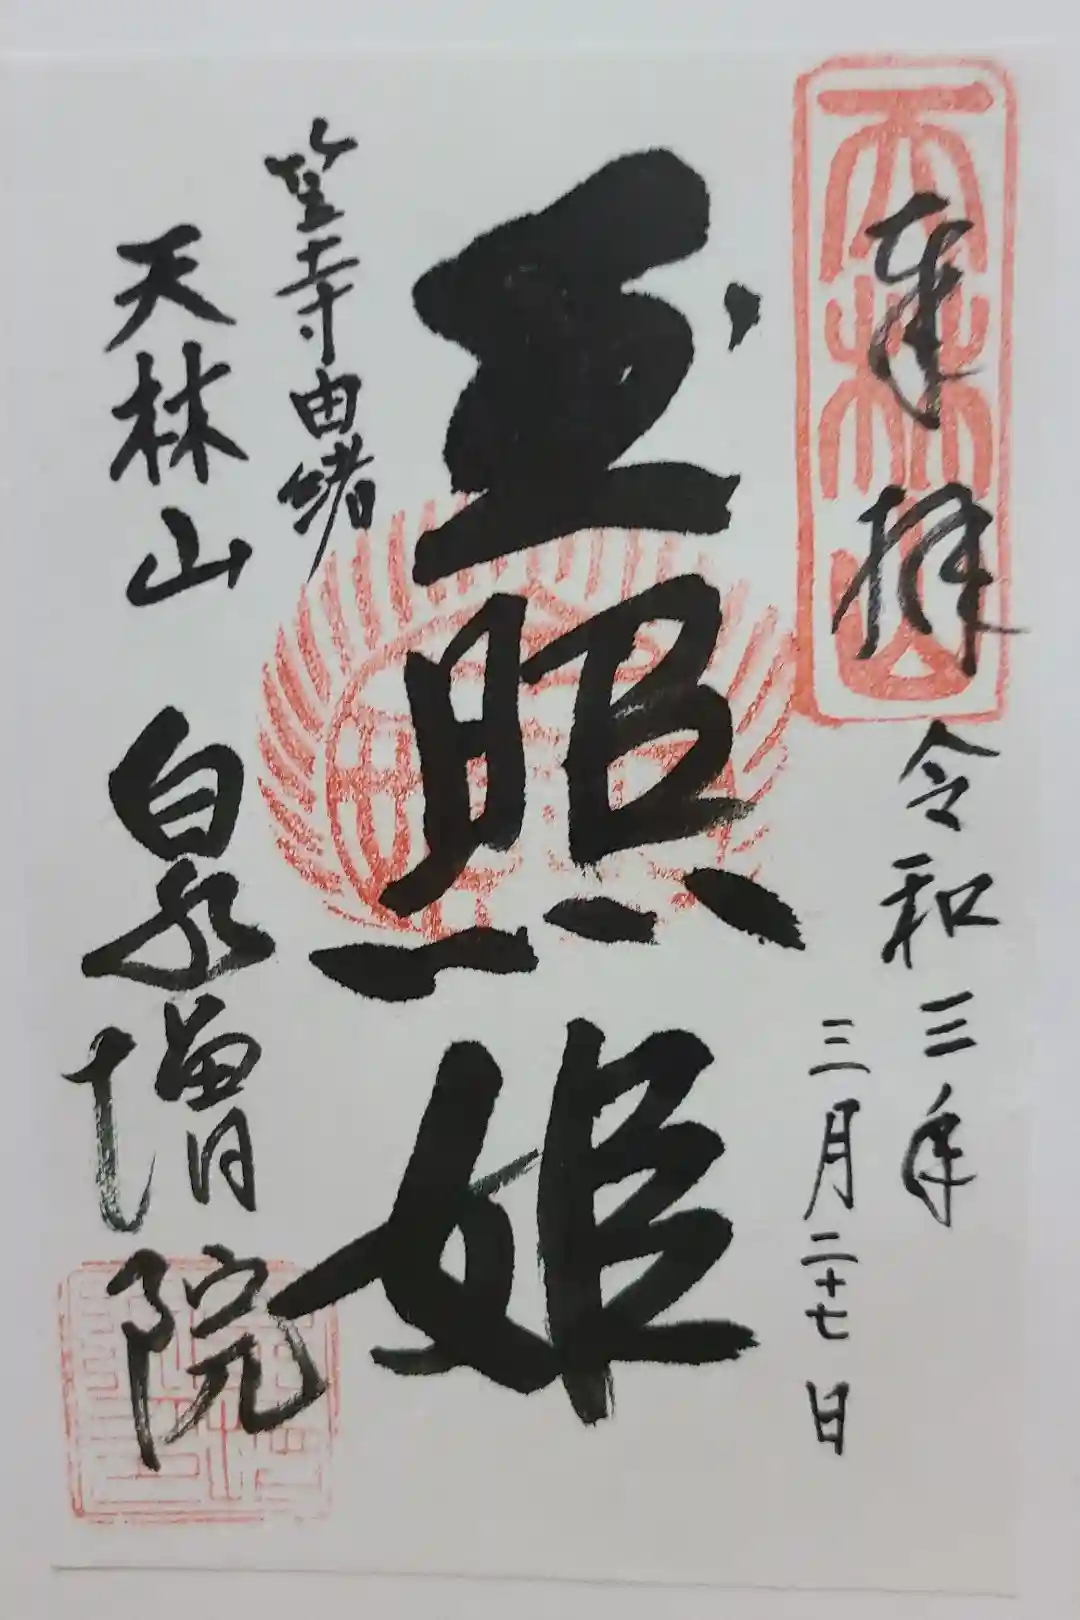 奉拝
天林山
令和三年
三月二十七日
玉照姫
笠寺由緒
天林山 泉増院